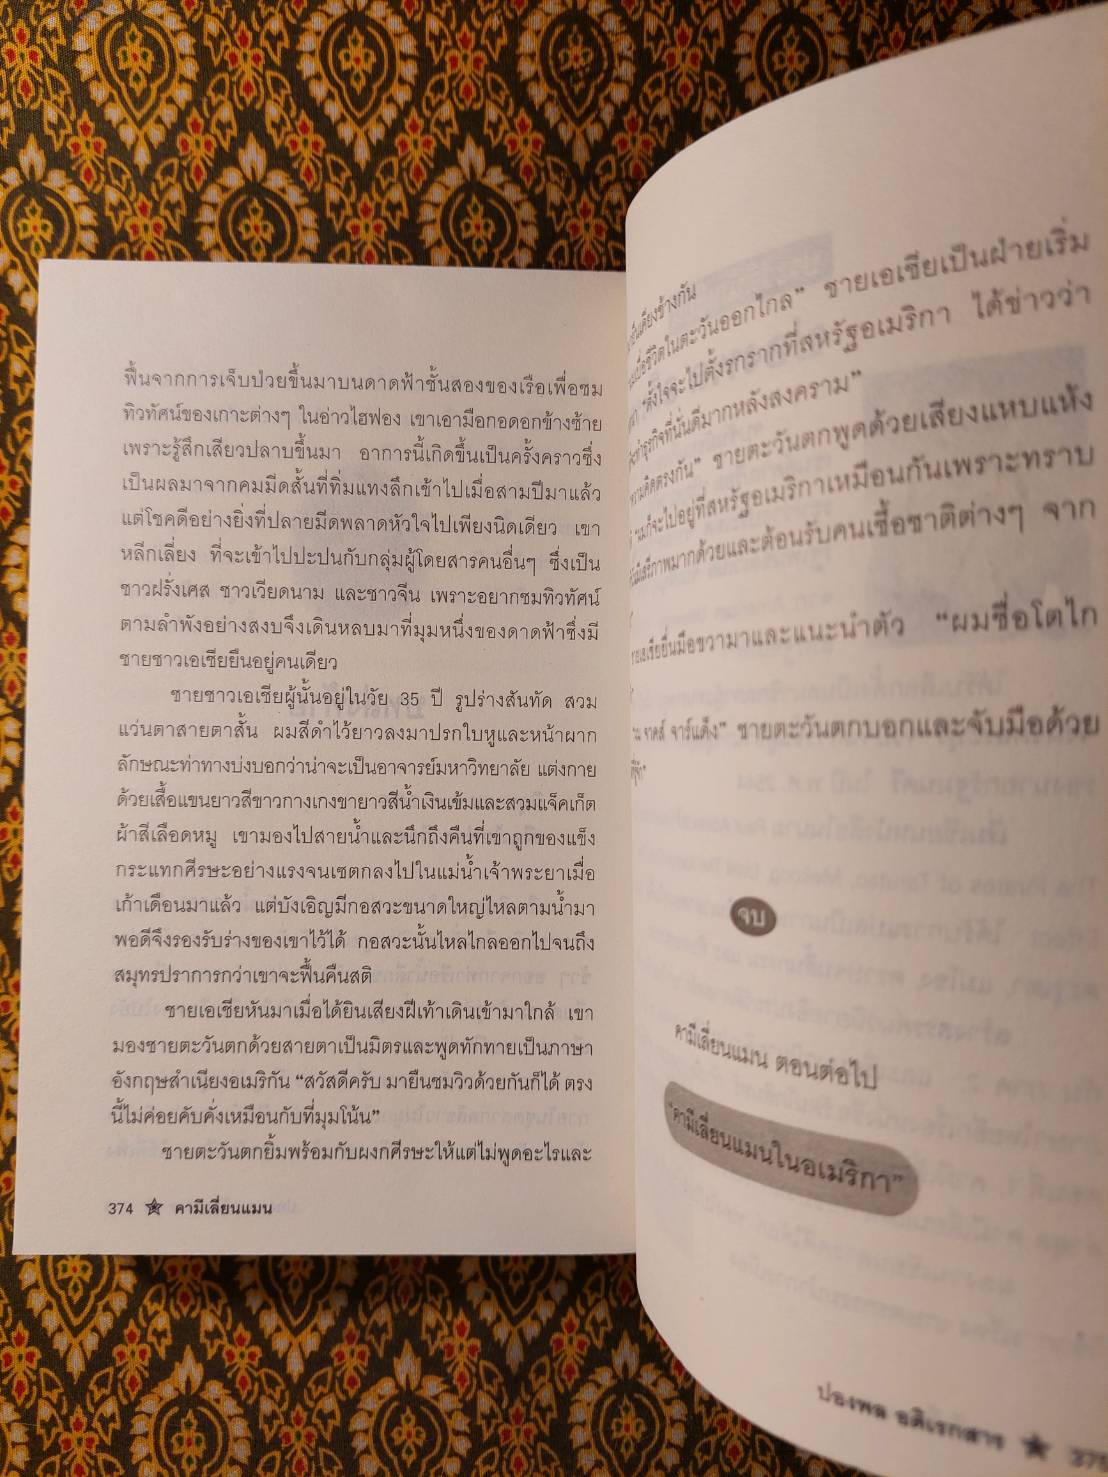 ฟื้นจากการเจ็บป่วยขึ้นมาบนดาดฟ้าชั้นสองของเรือเพื่อชม
ทิวทัศน์ของเกาะต่างๆ ในอ่าวไฮฟอง เขาเอามือกอดอกข้างซ้าย
เพราะรู้สึกเสียวปลาบขึ้นมา อาการนี้เกิดขึ้นเป็นครั้งคราวซึ่ง
เป็นผลมาจากคมมีดสั้นที่ทิ่มแทงลึกเข้าไปเมื่อสามปีมาแล้ว
แต่โชคดีอย่างยิ่งที่ปลายมีดพลาดหัวใจไปเพียงนิดเดียว เขา
หลีกเลี่ยง ที่จะเข้าไปปะปนกับกลุ่มผู้โดยสารคนอื่นๆ ซึ่งเป็น
ชาวฝรั่งเศส ชาวเวียดนาม และชาวจีน เพราะอยากชมทิวทัศน์
ตามลำพังอย่างสงบจึงเดินหลบมาที่มุมหนึ่งของดาดฟ้าซึ่งมี
ชายชาวเอเชียยืนอยู่คนเดียว
ชายชาวเอเชียผู้นั้นอยู่ในวัย 35 ปี รูปร่างสันทัด สวม
แว่นตาสายตาสั้น ผมสีดำไว้ยาวลงมาปรกใบหูและหน้าผาก
ลักษณะท่าทางบ่งบอกว่าน่าจะเป็นอาจารย์มหาวิทยาลัย แต่งกาย
ด้วยเสื้อแขนยาวสีขาวกางเกงขายาวสีน้ำเงินเข้มและสวมแจ็คเก็ต
ผ้าสีเลือดหมู เขามองไปสายน้ำและนึกถึงคืนที่เขาถูกของแข็ง
กระแทกศีรษะอย่างแรงจนเซตกลงไปในแม่น้ำเจ้าพระยาเมื่อ
เก้าเดือนมาแล้ว แต่บังเอิญมีกอสวะขนาดใหญ่ไหลตามน้ำมา
พอดีจึงรองรับร่างของเขาไว้ได้ กอสวะนั้นไหลไกลออกไปจนถึง
สมุทรปราการกว่าเขาจะฟื้นคืนสติ
ชายเอเชียหันมาเมื่อได้ยินเสียงฝีเท้าเดินเข้ามาใกล้ เขา
มองชายตะวันตกด้วยสายตาเป็นมิตรและพูดทักทายเป็นภาษา
อังกฤษสำเนียงอเมริกัน “สวัสดีครับ มายืนชมวิวด้วยกันก็ได้ ตรง
นี้ไม่ค่อยคับคั่งเหมือนกับที่มุมโน้น”
ชายตะวันตกยิ้มพร้อมกับผงกศีรษะให้แต่ไม่พูดอะไรและ
374 คามีเลี่ยนแมน
เคียงข้างกัน
ชีวิตในตะวันออกไกล” ชายเอเชียเป็นฝ่ายเริ่ม
“ตั้งใจจะไปตั้งรกรากที่สหรัฐอเมริกา ได้ข่าวว่า
ทำธุรกิจที่นั่นดีมากหลังสงคราม”
ความคิดตรงกัน” ชายตะวันตกพูดด้วยเสียงแหบแห้ง
“ผมก็จะไปอยู่ที่สหรัฐอเมริกาเหมือนกันเพราะทราบ
มีเสรีภาพมากด้วยและต้อนรับคนเชื้อชาติต่างๆ จาก
ชายเอเชียยื่นมือขวามาและแนะนำตัว “ผมชื่อโตไก
จาคส์ จาร์แด็ง” ชายตะวันตกบอกและจับมือด้วย
จบ
คามีเลี่ยนแมน ตอนต่อไป
“คามีเลี่ยนแมนในอเมริกา”
ปองพล อดิเรกสาร 375